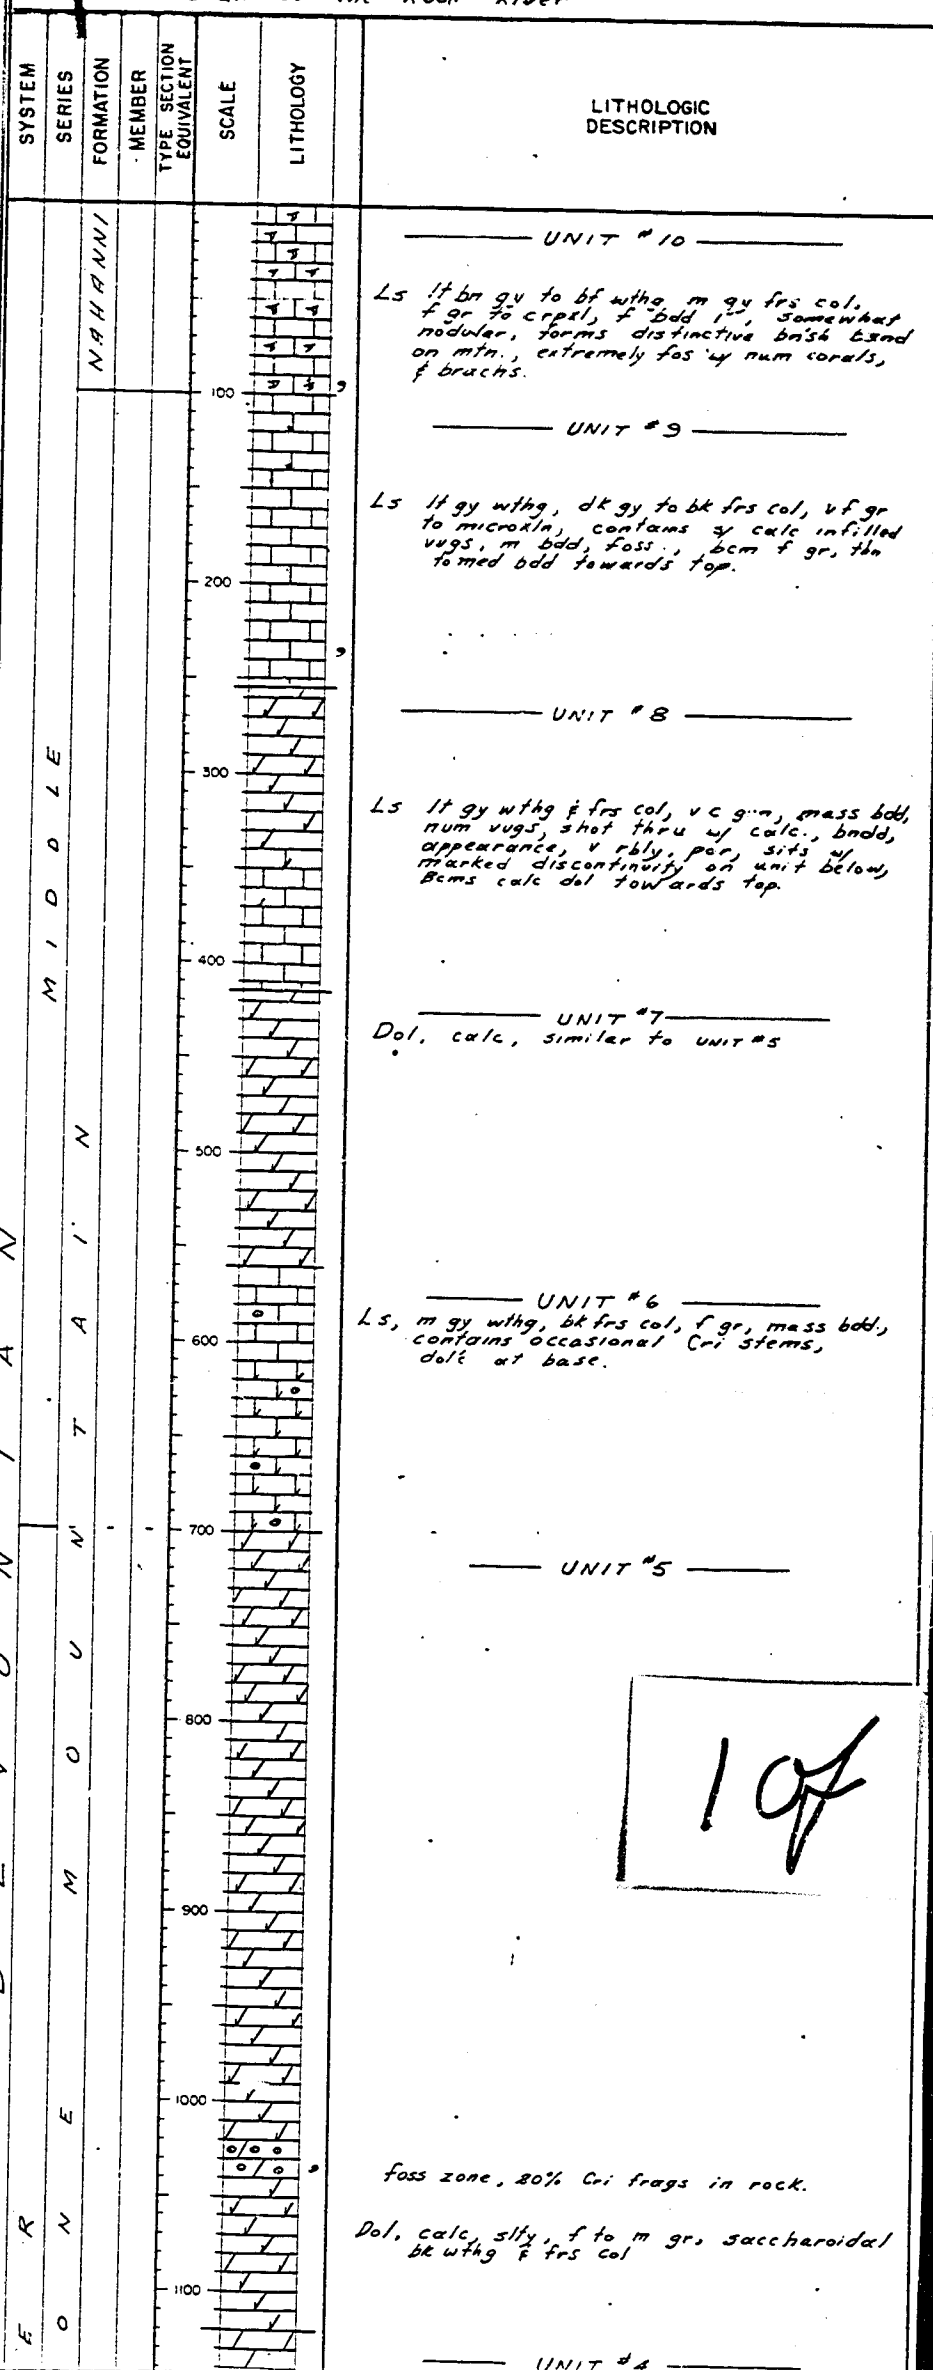 River
SYSTEM
SERIES
FORMATION
MEMBER
TYPE SECTION
EQUIVALENT
SCALE
LITHOLOGY
LITHOLOGIC
DESCRIPTION
NAHANNI
MIDDLE
UNIT #10
Ls lt bn gy to bf wthg m gy frs col,
f gr to crpxl, f bdd 1", somewhat
nodular, forms distinctive bn'sh band
on mtn., extremely fos w/ num corals,
& brachs.
100
UNIT #9
Ls lt gy wthg, dk gy to bk frs col, v f gr
to microxln, contains calc infilled
vugs, m bdd, foss., bcm f gr, thn
to med bdd towards top.
200
UNIT #8
300
Ls lt gy wthg & frs col, v c g, mass bdd,
num vugs, shot thru w/ calc., bndd,
appearance, v rbly, por, sits w/
marked discontinuity on unit below,
Bcms calc dol towards top.
400
UNIT #7
Dol, calc, similar to UNIT #5
500
UNIT #6
Ls, m gy wthg, bk frs col, f gr, mass bdd.,
contains occasional Cri stems,
dol'c at base.
600
700
UNIT #5
800
1 of
900
1000
foss zone, 20% Cri frags in rock.
Dol, calc, slty, f to m gr, saccharoidal
bk wthg & frs col
1100
UNIT #4